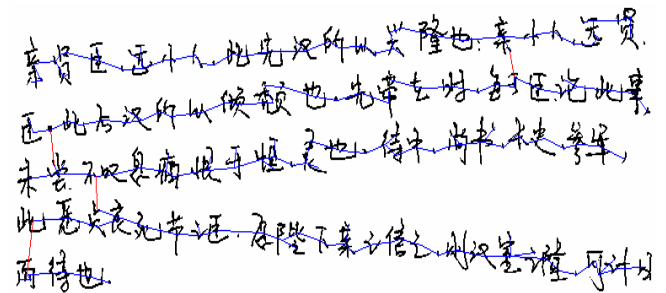 亲贤臣远小人,此先汉所以兴隆也;亲小人远贤
臣,此后汉所以倾颓也.先帝在时,每与臣论此事,
未尝不叹息痛恨于桓、灵也.侍中尚书长史参军,
此悉贞良死节之臣,愿陛下亲之信之,则汉室之隆,可计日
而待也.